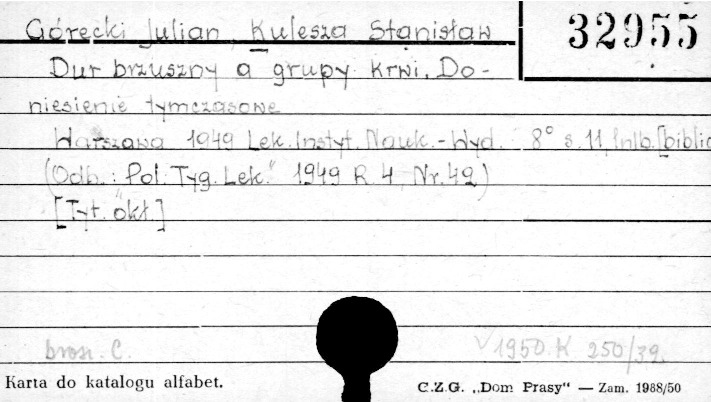 Górecki Julian, Kulesza Stanisław
32955
Dur brzuszny a grupy krwi. Do-
niesienie tymczasowe
Warszawa 1949 Lek. Instyt. Nauk.-Wyd. 8° s. 11, 1 nlb. [biblio
(Odb.: "Pol. Tyg. Lek." 1949 R. 4, Nr. 42)
[Tyt. okł.]
brosz. C. 1950 K 250/39.
Karta do katalogu alfabet.
C.Z.G. „Dom Prasy" — Zam. 1988/50